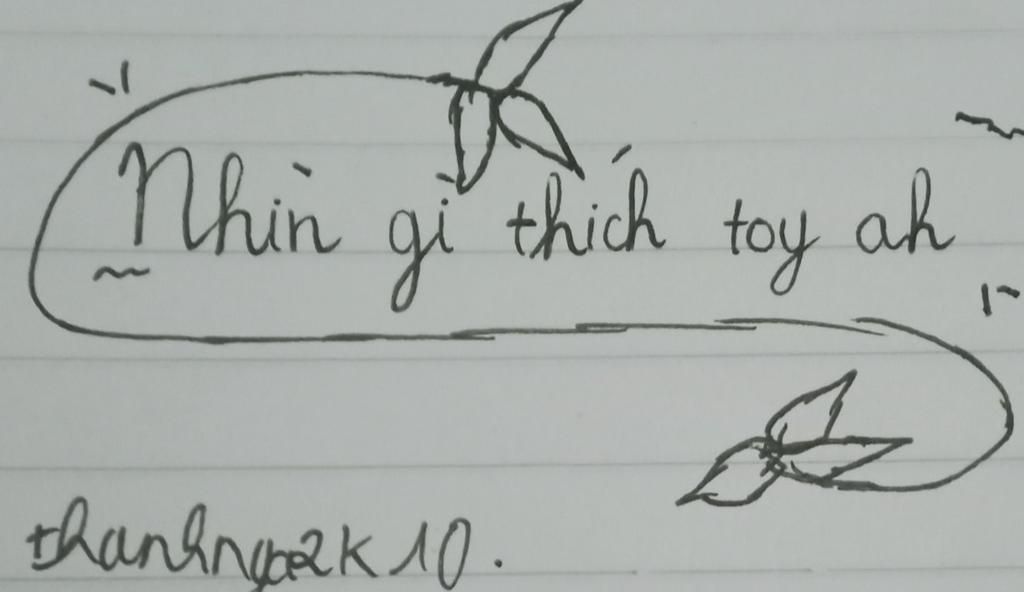 Nhìn gì thích toy ah
thanhngoc2k10.